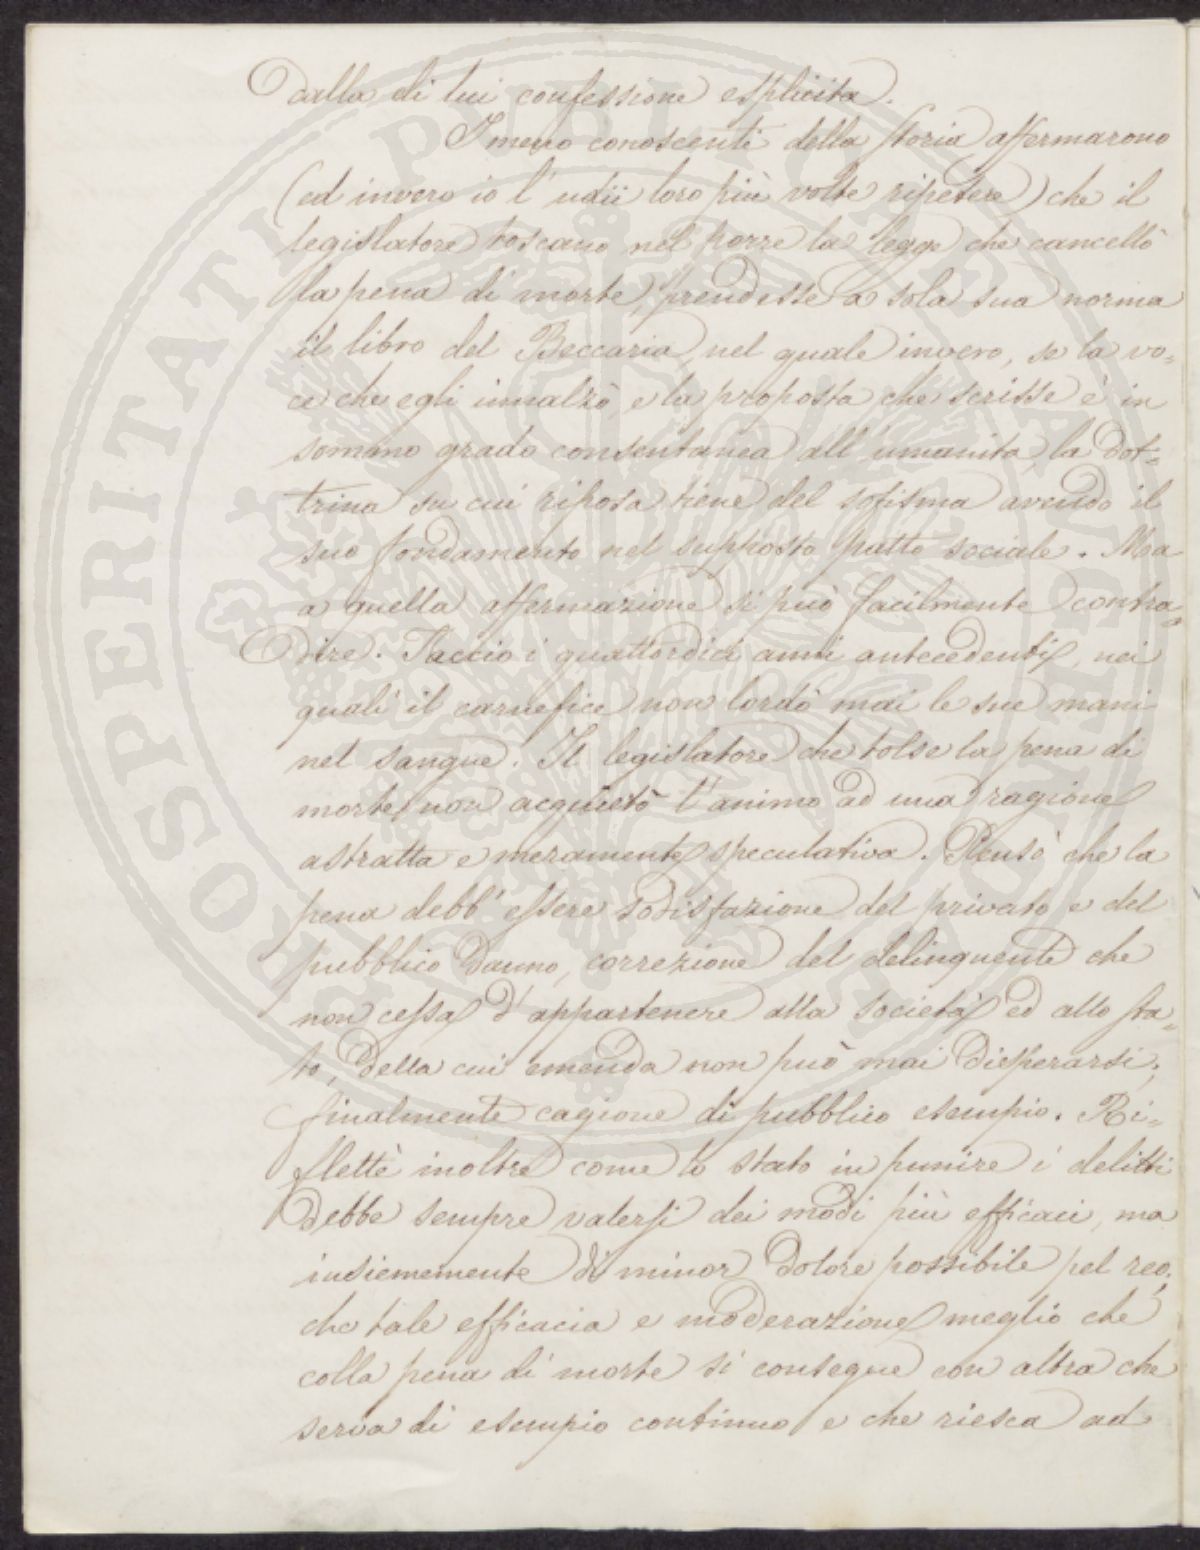 dalla di lui confessione esplicita.
I meno conoscenti della storia affermarono
(ed invero io l'udii loro più volte ripetere) che il
legislatore toscano nel porre la legge che cancellò
la pena di morte, prendesse a sola sua norma
il libro del Beccaria, nel quale invero, se la vo=
ce che egli innalzò, e la proposta che scrisse è in
sommo grado consentanea all'umanità, la dot=
trina su cui riposa tiene del sofisma avendo il
suo fondamento nel supposto patto sociale. Ma
a quella affermazione si può facilmente contra=
dire. Taccio i quattordici anni antecedenti, nei
quali il carnefice non lordò mai le sue mani
nel sangue. Il legislatore che tolse la pena di
morte, non acquietò l'animo ad una ragione
astratta e meramente speculativa. Pensò che la
pena debb'essere sodisfazione del privato e del
pubblico danno, correzione del delinquente che
non cessa d'appartenere alla società ed allo sta=
to, della cui emenda non può mai disperarsi;
finalmente cagione di pubblico esempio. Ri=
flettè inoltre come lo stato in punire i delitti
debbe sempre valersi dei modi più efficaci, ma
insiememente di minor dolore possibile pel reo;
che tale efficacia e moderazione meglio che
colla pena di morte si consegue con altra che
serva di esempio continuo e che riesca ad
PROSPERITATI PUBLICAE AUGENDAE